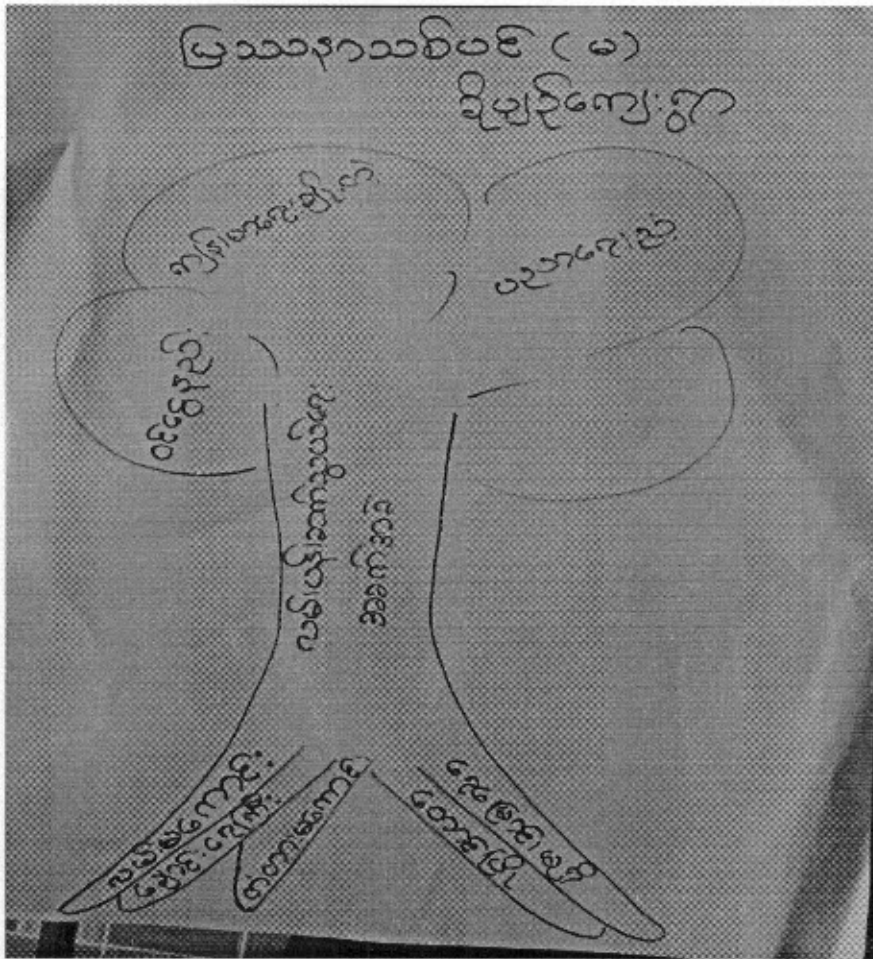 ပြဿနာသစ်ပင် (မ)
ခိုပျဉ်ကျေးရွာ
ကျန်းမာရေးချို့တဲ့
ပညာရေးနည်း
ဝင်ငွေနည်း
လမ်းပန်းဆက်သွယ်ရေး
အခက်အခဲ
လမ်းမကောင်း
ချောင်းရေကြီး
တံတားမကောင်း
တောင်ပြို